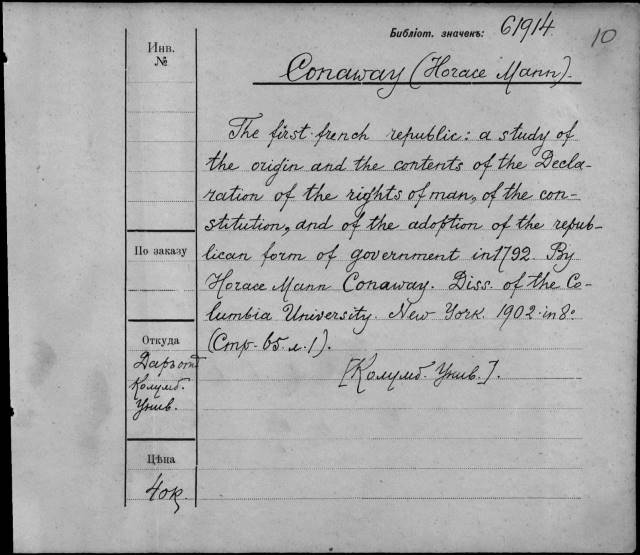 Библіот. значекъ: 61914
10
Инв.
№
Conaway (Horace Mann).
The first french republic: a study of
the origin and the contents of the Decla-
ration of the rights of man, of the con-
stitution, and of the adoption of the repub-
lican form of government in 1792. By
Horace Mann Conaway. Diss. of the Co-
lumbia University. New York 1902 in 8º
(Стр. 65 л. 1).
[Колумб. Унив.].
По заказу
Откуда
Даръ отъ
Колумб.
Унив.
Цѣна
40к.